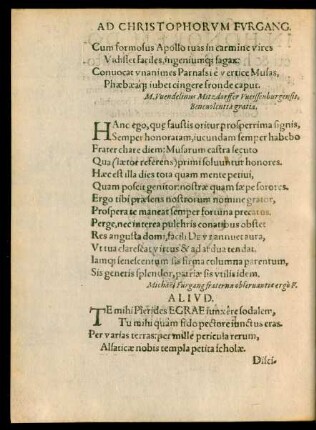 AD CHRISTOPHORVM FVRGANG.
Cum formosus Apollo tuas in carmine vires
Vidisset faciles, ingeniumq́; sagax:
Conuocat vnanimes Parnassi è vertice Musas,
Phæbæaq́; iubet cingere fronde caput.
M. Vuendelinus Mitzdorffer
Beneuolentiæ gratia.
HAnc ego, quæ faustis oritur prosperrima signis,
Semper honoratam, iucundam semper habebo
Frater chare diem: Musarum castra secuto
Qua (lætor referens) primi soluuntur honores.
Hæc est illa dies tota quam mente petiui,
Quam poscit genitor: nostræ quam sæpe sorores.
Ergo tibi præsens nostrorum nomine grator,
Prospera te maneat semper fortuna precatus.
Perge, nec interea pulchris conatibus obstet
Res angusta domi, facili
Vt tua clarescat virtus & ad ardua tendas.
Iamq́; senescentum sis firma columna parentum,
Sis generis splendor, patriæ sis vtilis idem.
Michael Furgang fraternæ obseruantiæ ergò F.
ALIVD.
TE mihi Pierides EGRAE iunxêre sodalem,
Tu mihi quàm fido pectore iunctus eras.
Per varias terras: per mille pericula rerum,
Alsaticæ nobis templa petita scholæ.
Disci-